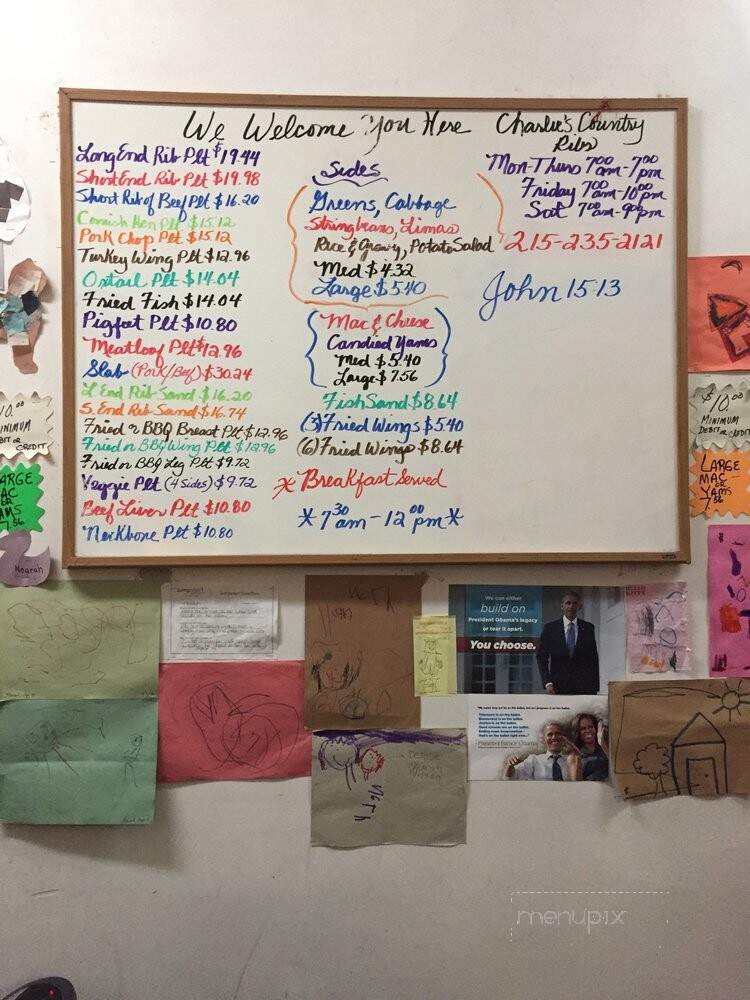 We Welcome You Here
Charlie's Country
Ribs
Long End Rib Plt $19.44
Short End Rib Plt $19.98
Short Rib of Beef Plt $16.20
Cornish Hen Plt $15.12
Pork Chop Plt $15.12
Turkey Wing Plt $12.96
Oxtail Plt $14.04
Fried Fish $14.04
Pigfeet Plt $10.80
Meatloaf Plt $12.96
Slab (Pork/Beef) $30.24
L End Rib Sand $16.20
S. End Rib Sand $16.74
Fried or BBQ Breast Plt $12.96
Fried or BBQ Wing Plt $12.96
Fried or BBQ Leg Plt $9.72
Veggie Plt (4 Sides) $9.72
Beef Liver Plt $10.80
Neckbone Plt $10.80
Sides
Greens, Cabbage
Stringbeans, Limas
Rice & Gravy, Potato Salad
Med $4.32
Large $5.40
Mac & Cheese
Candied Yams
Med $5.40
Large $7.56
Fish Sand $8.64
(3) Fried Wings $5.40
(6) Fried Wings $8.64
* Breakfast Served
* 7:30 am - 12:00 pm *
Mon-Thurs 7:00 am-7:00 pm
Friday 7:00 am-10:00 pm
Sat 7:00 am-9:00 pm
215-235-2121
John 15:13
10.00
MINIMUM
DEBIT or
CREDIT
LARGE
MAC
YAMS
7.56
Neárah
$10.00
MINIMUM
DEBIT or CREDIT
LARGE
MAC
or
YAMS
7.56
We can either
build on
President Obama's legacy
or tear it apart.
You choose.
HELLO
KITTY
President Barack Obama
menupix